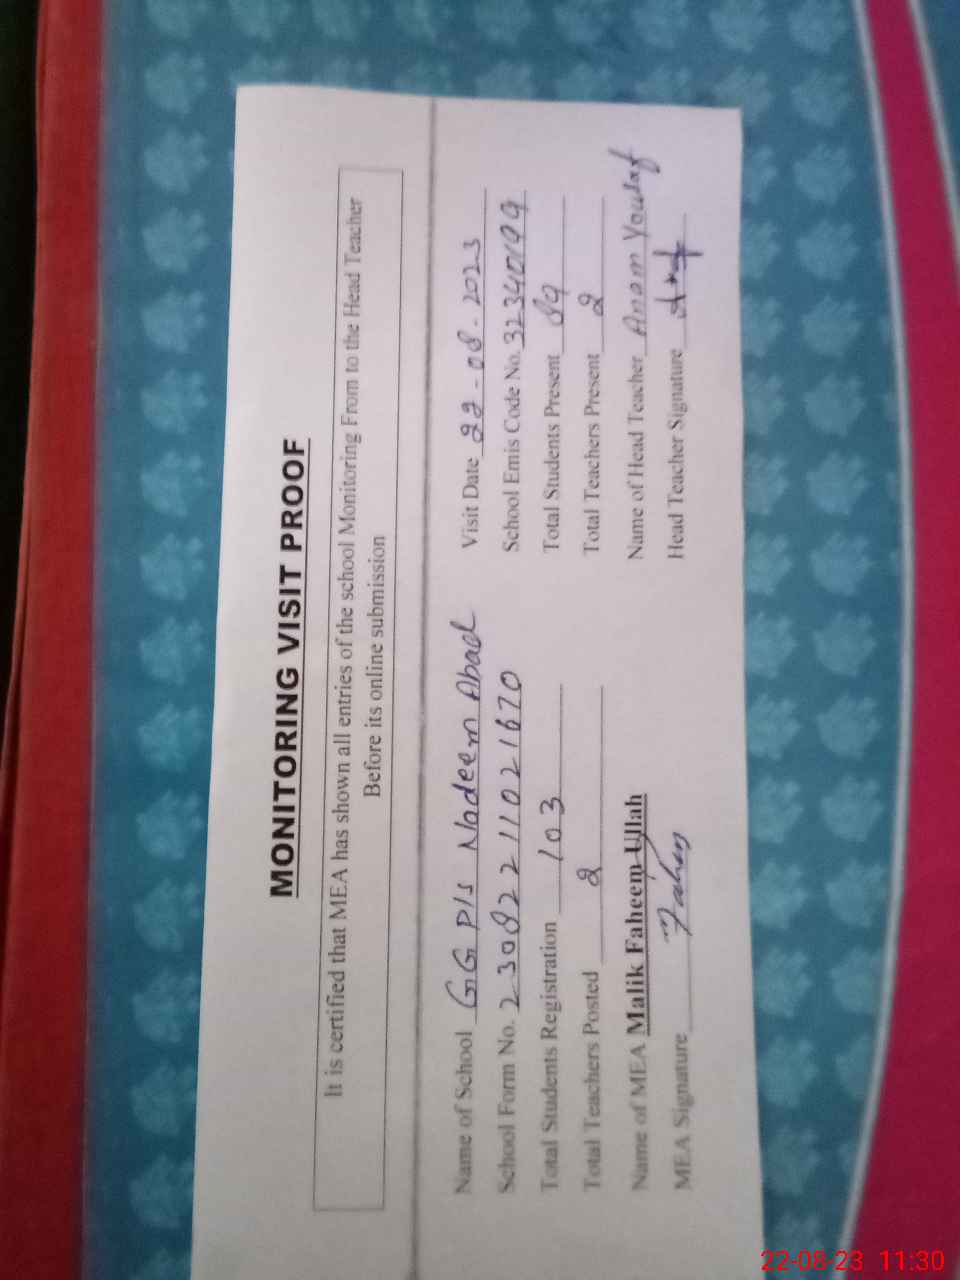 MONITORING VISIT PROOF
It is certified that MEA has shown all entries of the school Monitoring From to the Head Teacher
Before its online submission
Name of School GGP/S Nadeem Abad Visit Date 22-08-2023
School Form No. 23082211021670 School Emis Code No. 32340199
Total Students Registration 103 Total Students Present 89
Total Teachers Posted 2 Total Teachers Present 2
Name of MEA Malik Faheem Ullah Name of Head Teacher Anam Yousaf
MEA Signature Faheem Head Teacher Signature
22-08-23 11:30